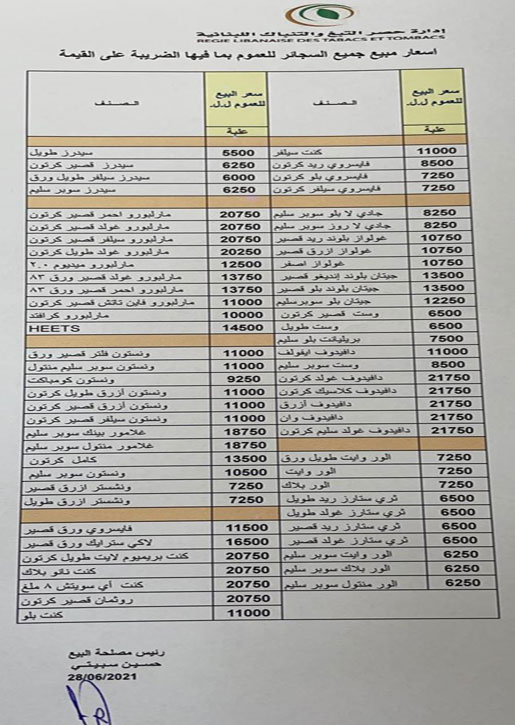 إدارة حصر التبغ والتنباك اللبنانية
REGIE LIBANAISE DES TABACS ET TOMBACS
اسعار مبيع جميع السجائر للعموم بما فيها الضريبة على القيمة
سعر البيع للعموم ل.ل.
الصنف
سعر البيع للعموم ل.ل.
الصنف
علبة
علبة
كنت سيلفر 11000
فايسروي ريد كرتون 8500
فايسروي بلو كرتون 7250
فايسروي سيلفر كرتون 7250
جادي لا بلو سوبر سليم 8250
جادي لا روز سوبر سليم 8250
غولواز بلوند ريد قصير 10750
غولواز ازرق قصير 10750
غولواز اصفر 10750
جيتان بلوند إنديغو قصير 13500
جيتان بلوند بلو قصير 13500
جيتان بلو سوبرسليم 12250
وست قصير كرتون 6500
وست طويل 6500
بريليانت بلو سليم 7500
دافيدوف ايفولف 11000
وست سوبر سليم 8500
دافيدوف غولد كرتون 21750
دافيدوف كلاسيك كرتون 21750
دافيدوف أزرق 21750
دافيدوف وان 21750
دافيدوف غولد سليم كرتون 21750
الور وايت طويل ورق 7250
الور وايت 7250
الور بلاك 7250
ثري ستارز ريد طويل 6500
ثري ستارز غولد طويل 6500
ثري ستارز ريد قصير 6500
ثري ستارز غولد قصير 6500
الور وايت سوبر سليم 6250
الور بلاك سوبر سليم 6250
الور منتول سوبر سليم 6250
سيدرز طويل 5500
سيدرز قصير كرتون 6250
سيدرز سيلفر طويل ورق 6000
سيدرز سوبر سليم 6250
مارلبورو احمر قصير كرتون 20750
مارلبورو غولد قصير كرتون 20750
مارلبورو سيلفر قصير كرتون 20750
مارلبورو غولد طويل كرتون 20250
مارلبورو ميديوم ٢.٠ 12500
مارلبورو غولد قصير ورق ٨٣ 13750
مارلبورو احمر قصير ورق ٨٣ 13750
مارلبورو فاين تاتش قصير كرتون 11000
مارلبورو كرافتد 10000
HEETS 14500
ونستون فلتر قصير ورق 11000
ونستون سوبر سليم منتول 11000
ونستون كومباكت 9250
ونستون أزرق طويل كرتون 11000
ونستون أزرق قصير كرتون 11000
ونستون سيلفر قصير كرتون 11000
غلامور بينك سوبر سليم 18750
غلامور منتول سوبر سليم 18750
كامل كرتون 13500
ونستون سوبر سليم 10500
ونشستر ازرق قصير 7250
ونشستر ازرق طويل 7250
فايسروي ورق قصير 11500
لاكي سترايك ورق قصير 16500
كنت بريميوم لايت طويل كرتون 20750
كنت نانو بلاك 20750
كنت أي سويتش ٨ ملغ 20750
روثمان قصير كرتون 20750
كنت بلو 11000
رئيس مصلحة البيع
حسين سبيتي
28/06/2021